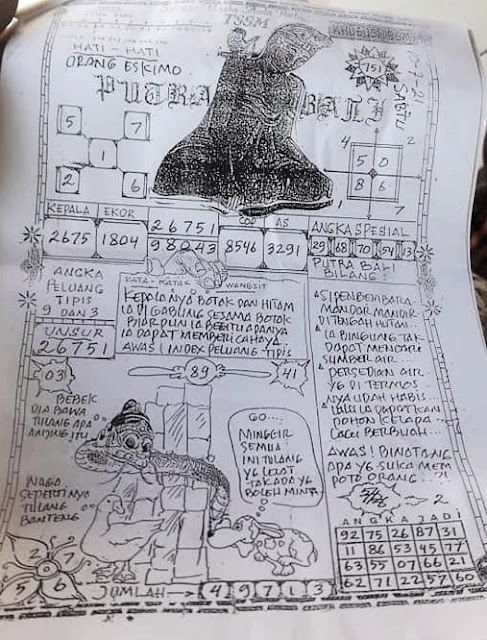 TSSM
HATI - HATI
ORANG ESKIMO
751
SABTU
PUTRA BALI
5 7
1
2 6
4 2
5 0
8 6
7
KEPALA EKOR
2675 1804
26751
98243
COP AS
8546 3291
ANGKA SPESIAL
29 68 70 54 13
PUTRA BALI
BILANG
ANGKA
PELUANG
TIPIS
9 DAN 3
UNSUR
26751
KATA - KATA WANGSIT
KEPALANYA BOTAK DAN HITAM
IA DI GABUNG SESAMA BOTAK
BIARPUN IA BEGITU ADANYA
IA DAPAT MEMBERI CAHAYA.
AWAS! INDEX PELUANG TIPIS
SI PENGEMBARA
MANDAR MANDIR
DI TENGAH HUTAN...
IA BINGUNG TAK
DAPAT MENCARI
SUMBER AIR...
PERSEDIAN AIR
YG DI TERMOS
NYA UDAH HABIS...
LALU IA DAPATKAN
POHON KELAPA
LAGI BERBUAH...
AWAS! BINATANG
APA YG SUKA MEM
POTO ORANG...?!
2
03
89
41
BEBEK
DIA BAWA
TULANG APA
ANJING ITU
GO....
MINGGIR
SEMUA
INI TULANG
YG LEZAT
TAK ADA YG
BOLEH MINTA
NAGA
SEPERTINYA
TULANG
BANTENG
2 7
5 6
JUMLAH → 4 9 7 1 3
ANGKA JADI
92 75 26 87 31
11 86 53 45 77
63 55 07 66 21
62 71 22 57 60